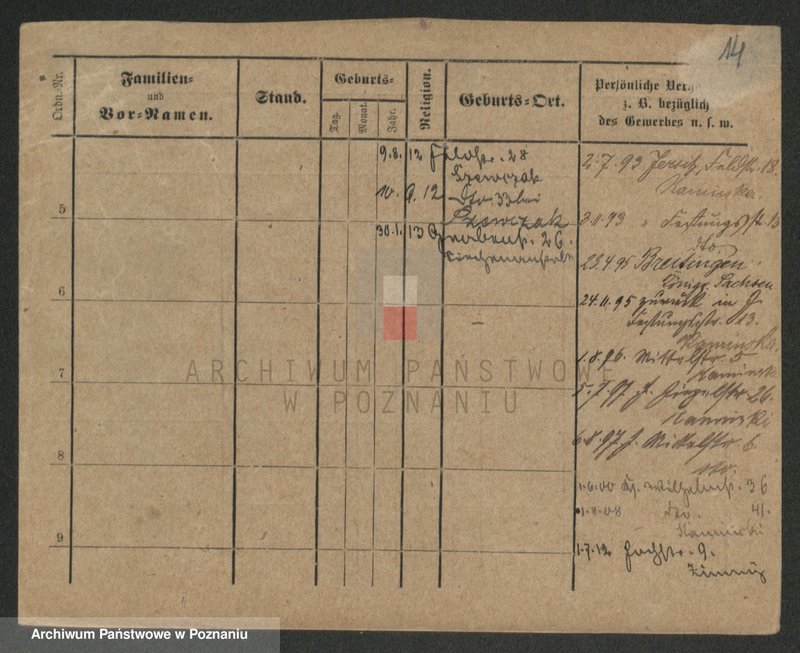 14
Ordn.-Nr.
Familien-
und
Vor-Namen.
Stand.
Geburts-
Tag.
Monat.
Jahr.
Religion.
Geburts-Ort.
Persönliche
z. B. bezüglich
des Gewerbes u. s. w.
9.8.12 Feldstr. 28
Szewczak
10. 9. 12 dto. 33 bei
Szewczak
30.1.13 Grabenstr. 26.
5
6
7
8
9
2.7.93 Jersitz, Feldstr. 18.
Kaminska.
93 " Festungsstr. 13
dto.
23.4.95 Breitingen
Königr. Sachsen
24.11.95 zurück in J.
Festungsstr. 13.
Kaminska.
1.8.96. Mittelstr. 5
Kaminski
5.7.97 J. Ziegelstr. 26.
Kaminski
6.8.97 J. Mittelstr. 6.
dto.
1.6.00 Wilhelmstr. 36
1.8.08 dto. 41.
Kaminski
1.7.12 Hochstr. 9.
ARCHIWUM PAŃSTWOWE
W POZNANIU
Archiwum Państwowe w Poznaniu